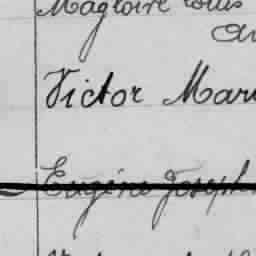 Magloire Louis
Victor Mari
Eugène Joseph